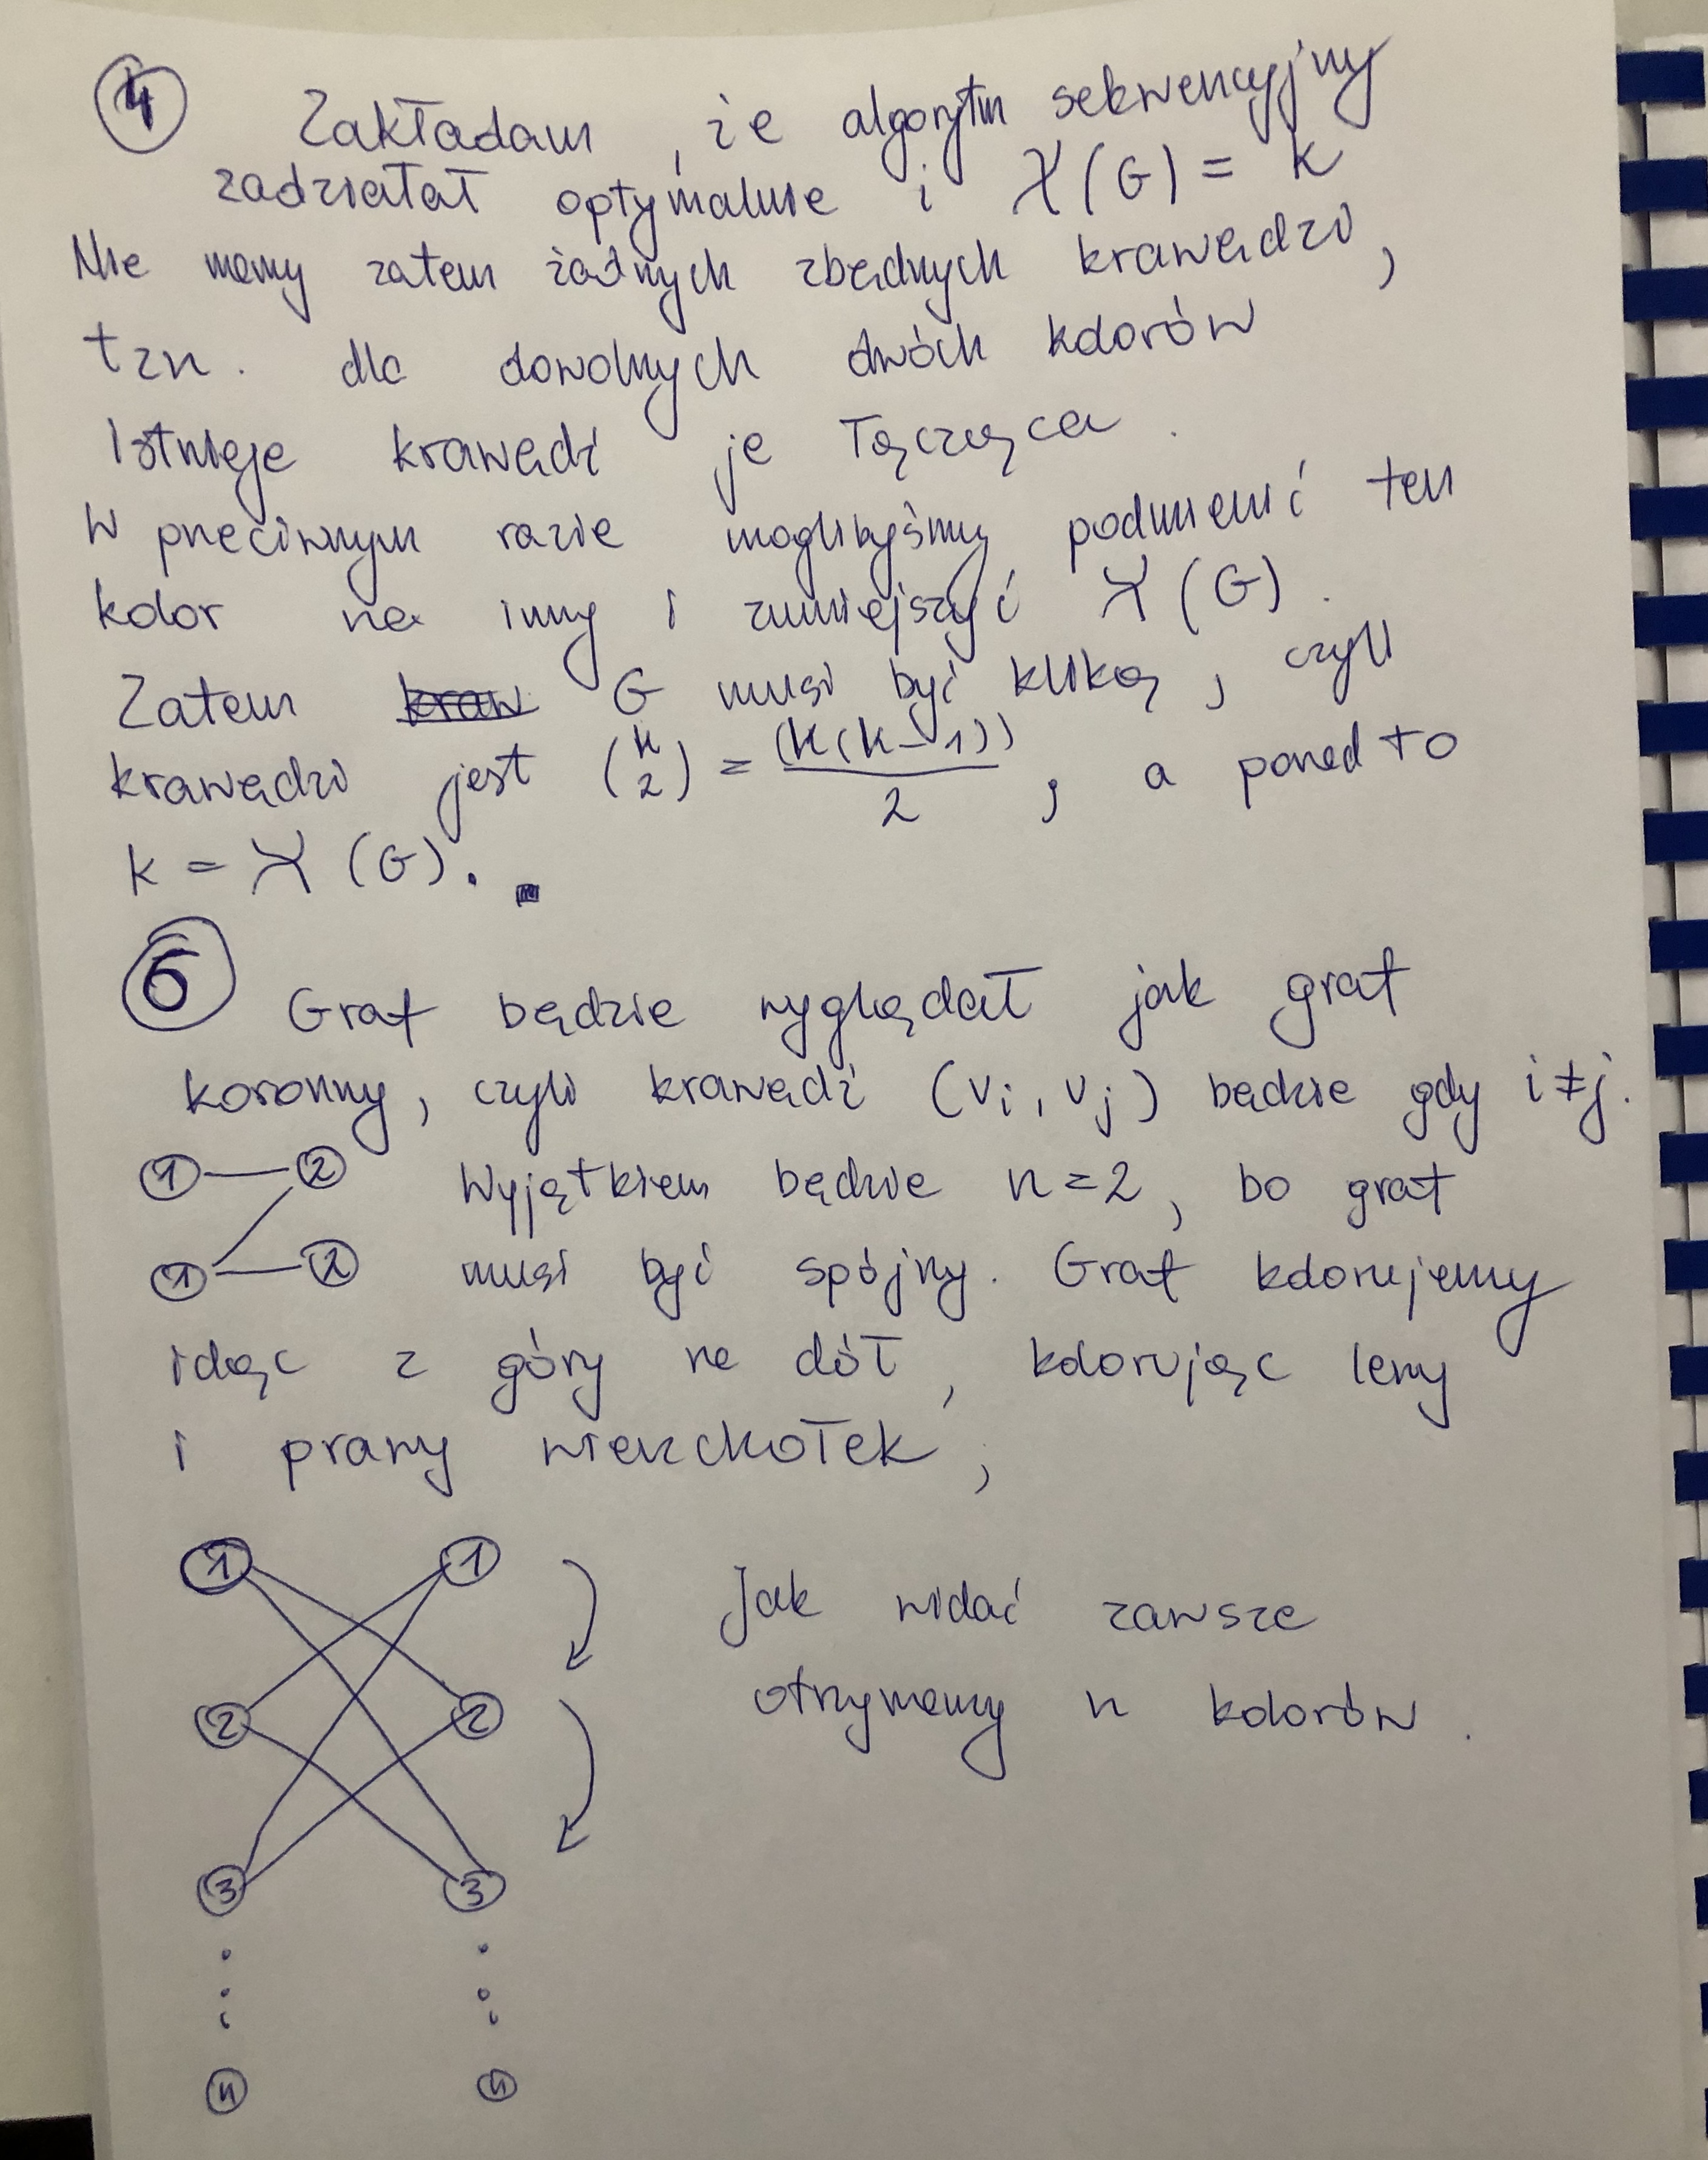 4 Zakładam, że algorytm sekwencyjny
zadziałał optymalnie i χ(G) = k
Nie mamy zatem żadnych zbędnych krawędzi,
tzn. dla dowolnych dwóch kolorów
Istnieje krawędź je łącząca.
W przeciwnym razie moglibyśmy podmienić ten
kolor na inny i zmniejszyć χ(G).
Zatem kraw G musi być kliką, czyli
krawędzi jest (k 2) = (k(k-1)) / 2, a ponad to
k = χ(G). ■
6 Graf będzie wyglądał jak graf
koronny, czyli krawędź (vi, uj) będzie gdy i≠j.
1 2 Wyjątkiem będzie n=2, bo graf
1 2 musi być spójny. Graf kolorujemy
idąc z góry na dół, kolorując lewy
i prawy wierzchołek,
1 1
Jak widać zawsze
otrzymamy n kolorów.
2 2
3 3
n n